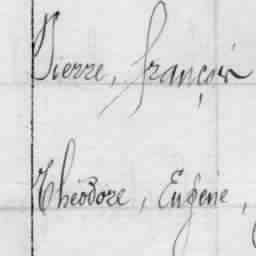 Pierre, françois
Théodore, Eugène,